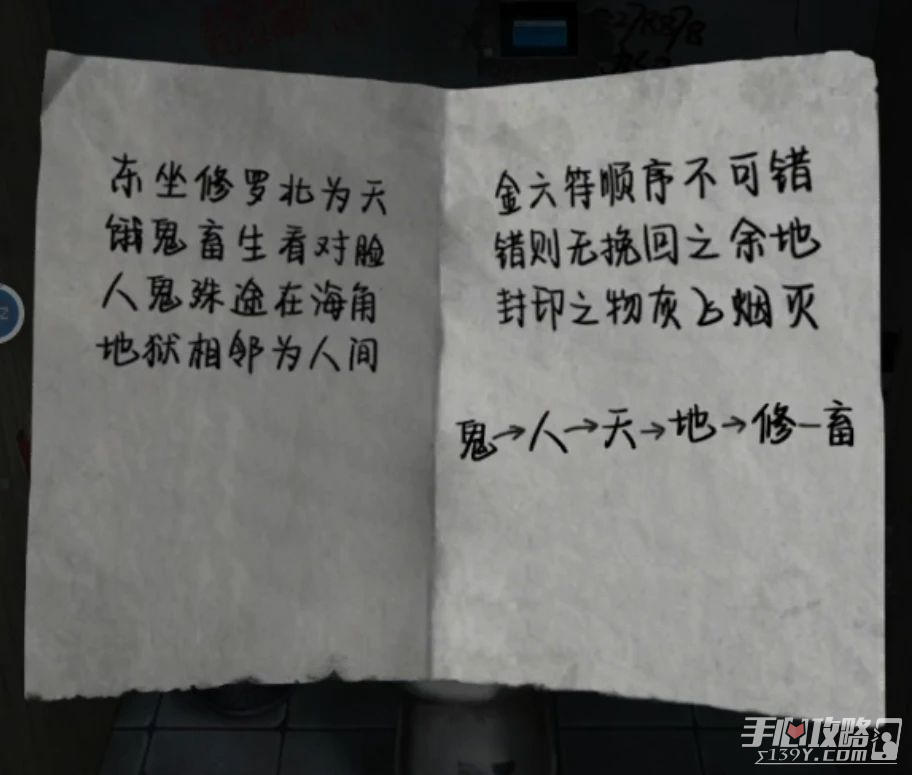 东坐修罗北为天
饿鬼畜生看对脸
人鬼殊途在海角
地狱相邻为人间
金六符顺序不可错
错则无挽回之余地
封印之物灰飞烟灭
鬼→人→天→地→修—畜
手心攻略
s139Y.com